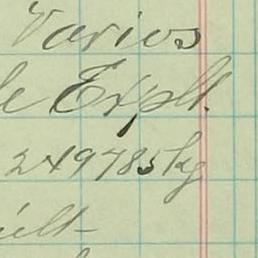 Varios
de Explt.
249785 kg
ult